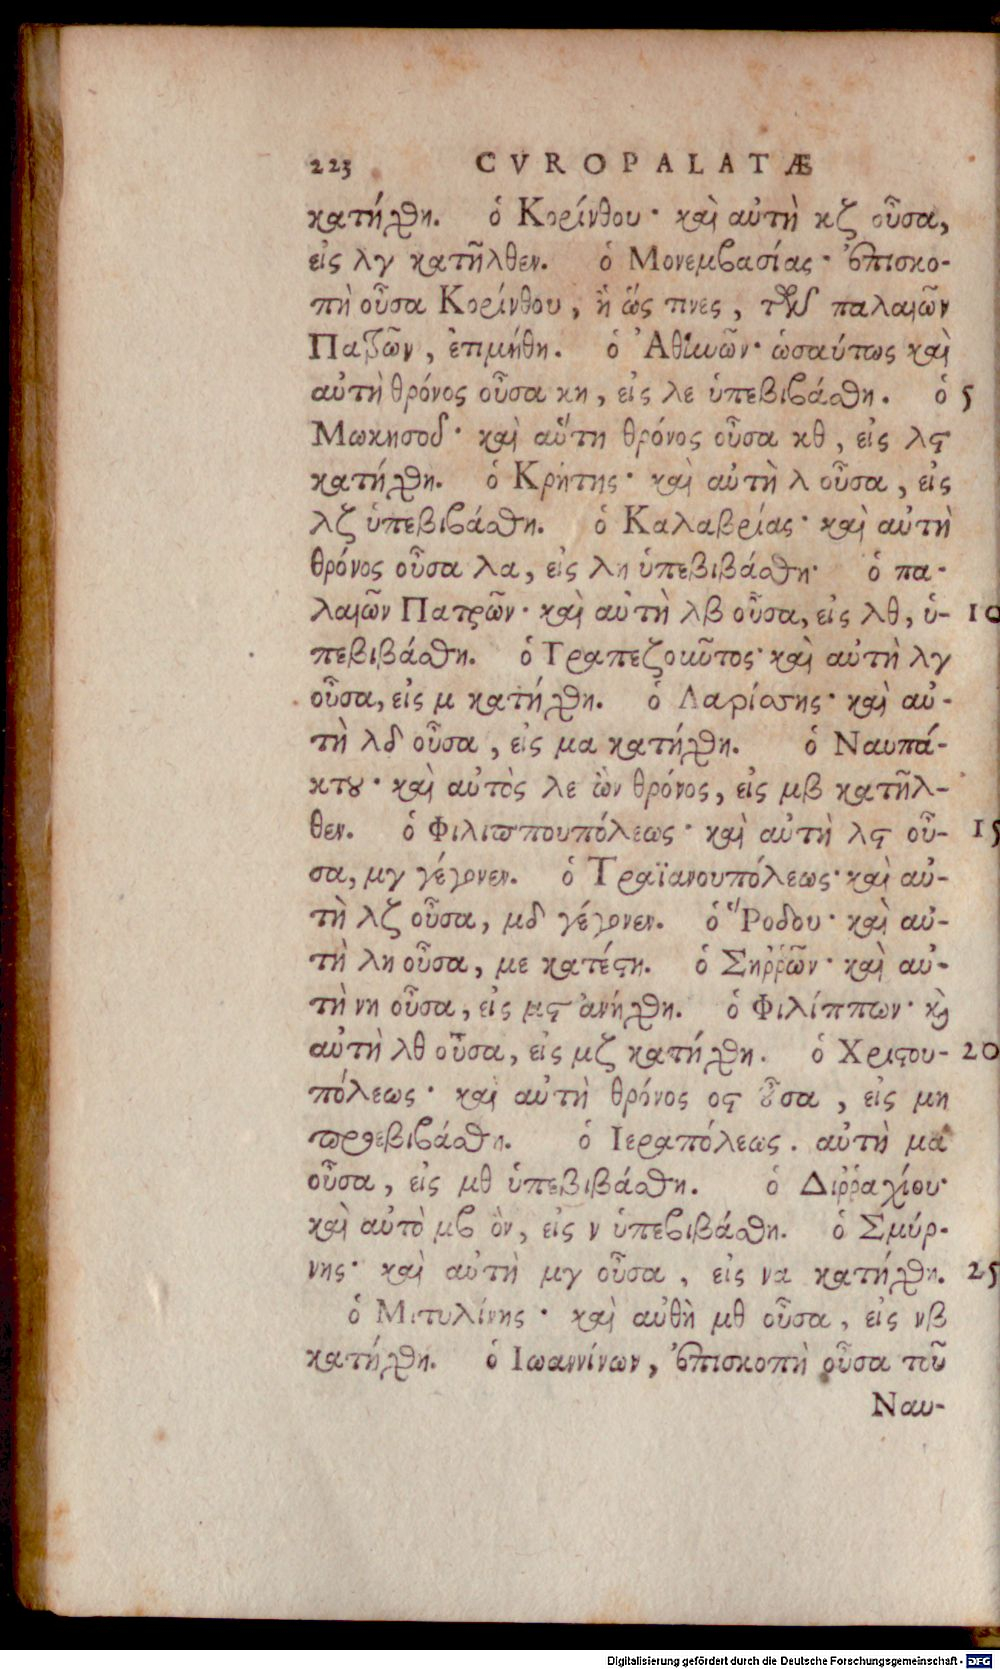 223 CVROPALATÆ
κατήχθη. ὁ Κορίνθου· καὶ αὐτὴ κζ οὖσα,
εἰς λγ κατῆλθεν. ὁ Μονεμβασίας· ἐπισκο-
πὴ οὖσα Κορίνθου, ἢ ὥς τινες, τῶν παλαιῶν
Πατρῶν, ἐτιμήθη. ὁ Ἀθηνῶν· ὡσαύτως καὶ
αὐτὴ θρόνος οὖσα κη, εἰς λε ὑπεβιβάσθη. ὁ 5
Μωκησοῦ· καὶ αὕτη θρόνος οὖσα κθ, εἰς λϛ
κατήχθη. ὁ Κρήτης· καὶ αὐτὴ λ οὖσα, εἰς
λζ ὑπεβιβάσθη. ὁ Καλαβρίας· καὶ αὐτὴ
θρόνος οὖσα λα, εἰς λη ὑπεβιβάσθη· ὁ πα-
λαιῶν Πατρῶν· καὶ αὐτὴ λβ οὖσα, εἰς λθ, ὑ- 10
πεβιβάσθη. ὁ Τραπεζοῦντος· καὶ αὐτὴ λγ
οὖσα, εἰς μ κατήχθη. ὁ Λαρίσσης· καὶ αὐ-
τὴ λδ οὖσα, εἰς μα κατήχθη. ὁ Ναυπά-
κτου· καὶ αὐτὸς λε ὢν θρόνος, εἰς μβ κατῆλ-
θεν. ὁ Φιλιππουπόλεως· καὶ αὐτὴ λϛ οὖ- 15
σα, μγ γέγονεν. ὁ Τραϊανουπόλεως· καὶ αὐ-
τὴ λζ οὖσα, μδ γέγονεν. ὁ Ῥόδου· καὶ αὐ-
τὴ λη οὖσα, με κατέστη. ὁ Σηῤῥῶν· καὶ αὐ-
τὴ νη οὖσα, εἰς μϛ ἀνήχθη. ὁ Φιλίππων· καὶ
αὐτὴ λθ οὖσα, εἰς μζ κατήχθη. ὁ Χριστου- 20
πόλεως· καὶ αὐτὴ θρόνος οϛ οὖσα, εἰς μη
προεβιβάσθη. ὁ Ιεραπόλεως. αὐτὴ μα
οὖσα, εἰς μθ ὑπεβιβάσθη. ὁ Διῤῥαχίου·
καὶ αὐτὸ μβ ὂν, εἰς ν ὑπεβιβάσθη. ὁ Σμύρ-
νης· καὶ αὐτὴ μγ οὖσα, εἰς να κατήχθη. 25
ὁ Μιτυλίνης· καὶ αὐθὴ μθ οὖσα, εἰς νβ
κατήχθη. ὁ Ιωαννίνων, ἐπισκοπὴ οὖσα τοῦ
Ναυ-
Digitalisierung gefördert durch die Deutsche Forschungsgemeinschaft - DFG